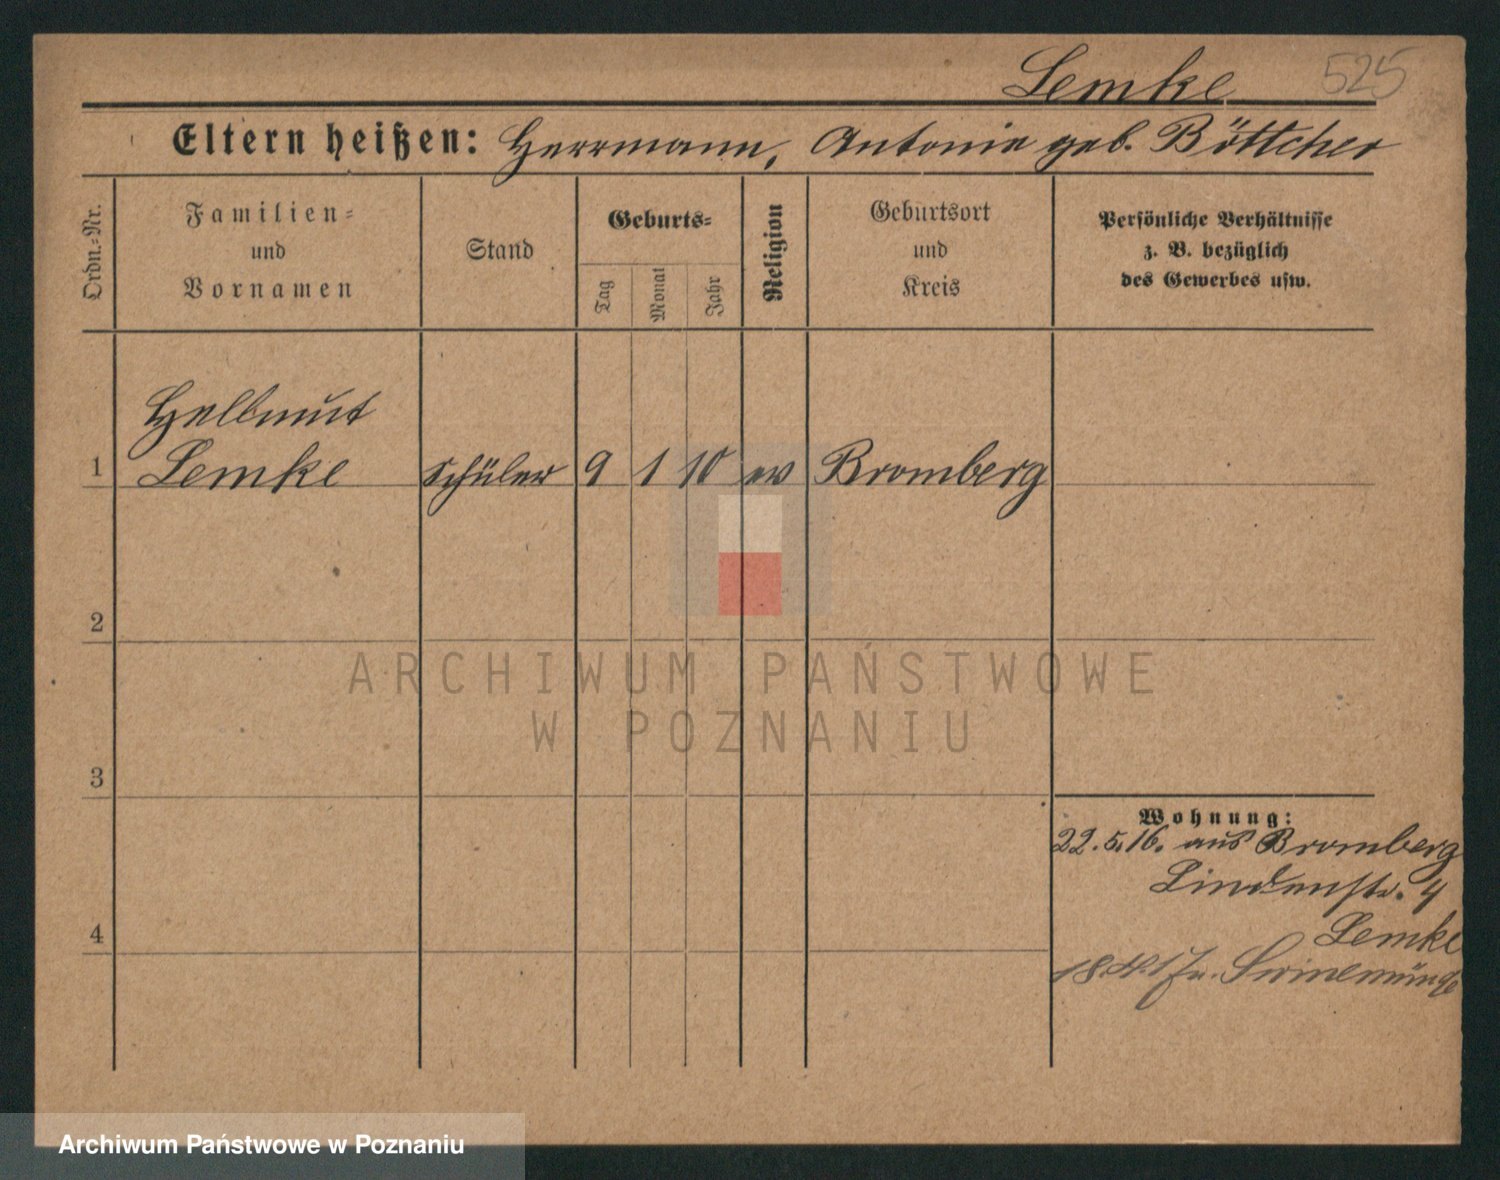 Lemke 525
Eltern heißen: Herrmann, Antonie geb. Böttcher
Ordn.-Nr.
Familien-
und
Vornamen
Stand
Geburts-
Tag
Monat
Jahr
Religion
Geburtsort
und
Kreis
Persönliche Verhältnisse
z. B. bezüglich
des Gewerbes usw.
Hellmut
1 Lemke Schüler 9 1 10 ev Bromberg
2
3
4
Wohnung:
22.5.16. aus Bromberg
Lindenstr. 4
Lemke
Swinemünde
ARCHIWUM PAŃSTWOWE
W POZNANIU
Archiwum Państwowe w Poznaniu